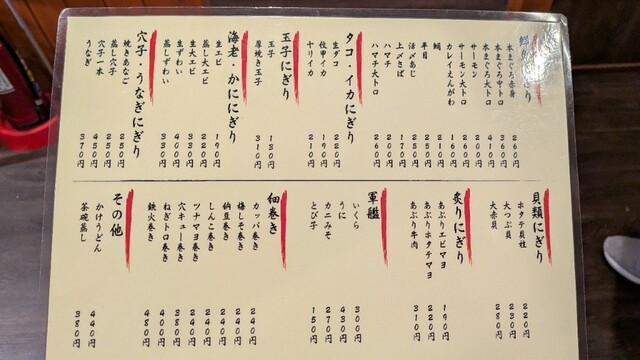 本まぐろ赤身 260円
本まぐろ中トロ 360円
本まぐろ大トロ 410円
サーモン 200円
サーモン大トロ 260円
カレイえんがわ 160円
鯛 210円
平目 250円
活〆あじ 250円
上〆さば 170円
ハマチ 200円
ハマチ大トロ 260円
タコ・イカにぎり
生ダコ 220円
紋甲イカ 190円
ヤリイカ 210円
玉子にぎり
玉子 130円
厚焼き玉子 310円
海老・かににぎり
生エビ 190円
蒸し大エビ 220円
生大エビ 330円
生ずわい 400円
蒸しずわい 330円
穴子・うなぎにぎり
焼きあなご 250円
蒸し穴子 250円
穴子一本 450円
うなぎ 370円
貝類にぎり
ホタテ貝柱 220円
大つぶ貝 230円
大赤貝 280円
炙りにぎり
あぶりエビマヨ 190円
あぶりホタテマヨ 220円
あぶり牛肉 310円
軍艦
いくら 300円
うに 430円
カニみそ 270円
とび子 150円
細巻き
カッパ巻き 240円
梅しそ巻き 240円
納豆巻き 240円
しんこ巻き 240円
ツナマヨ巻き 240円
穴キュー巻き 380円
ねぎトロ巻き 400円
鉄火巻き 480円
その他
かけうどん 440円
茶碗蒸し 380円